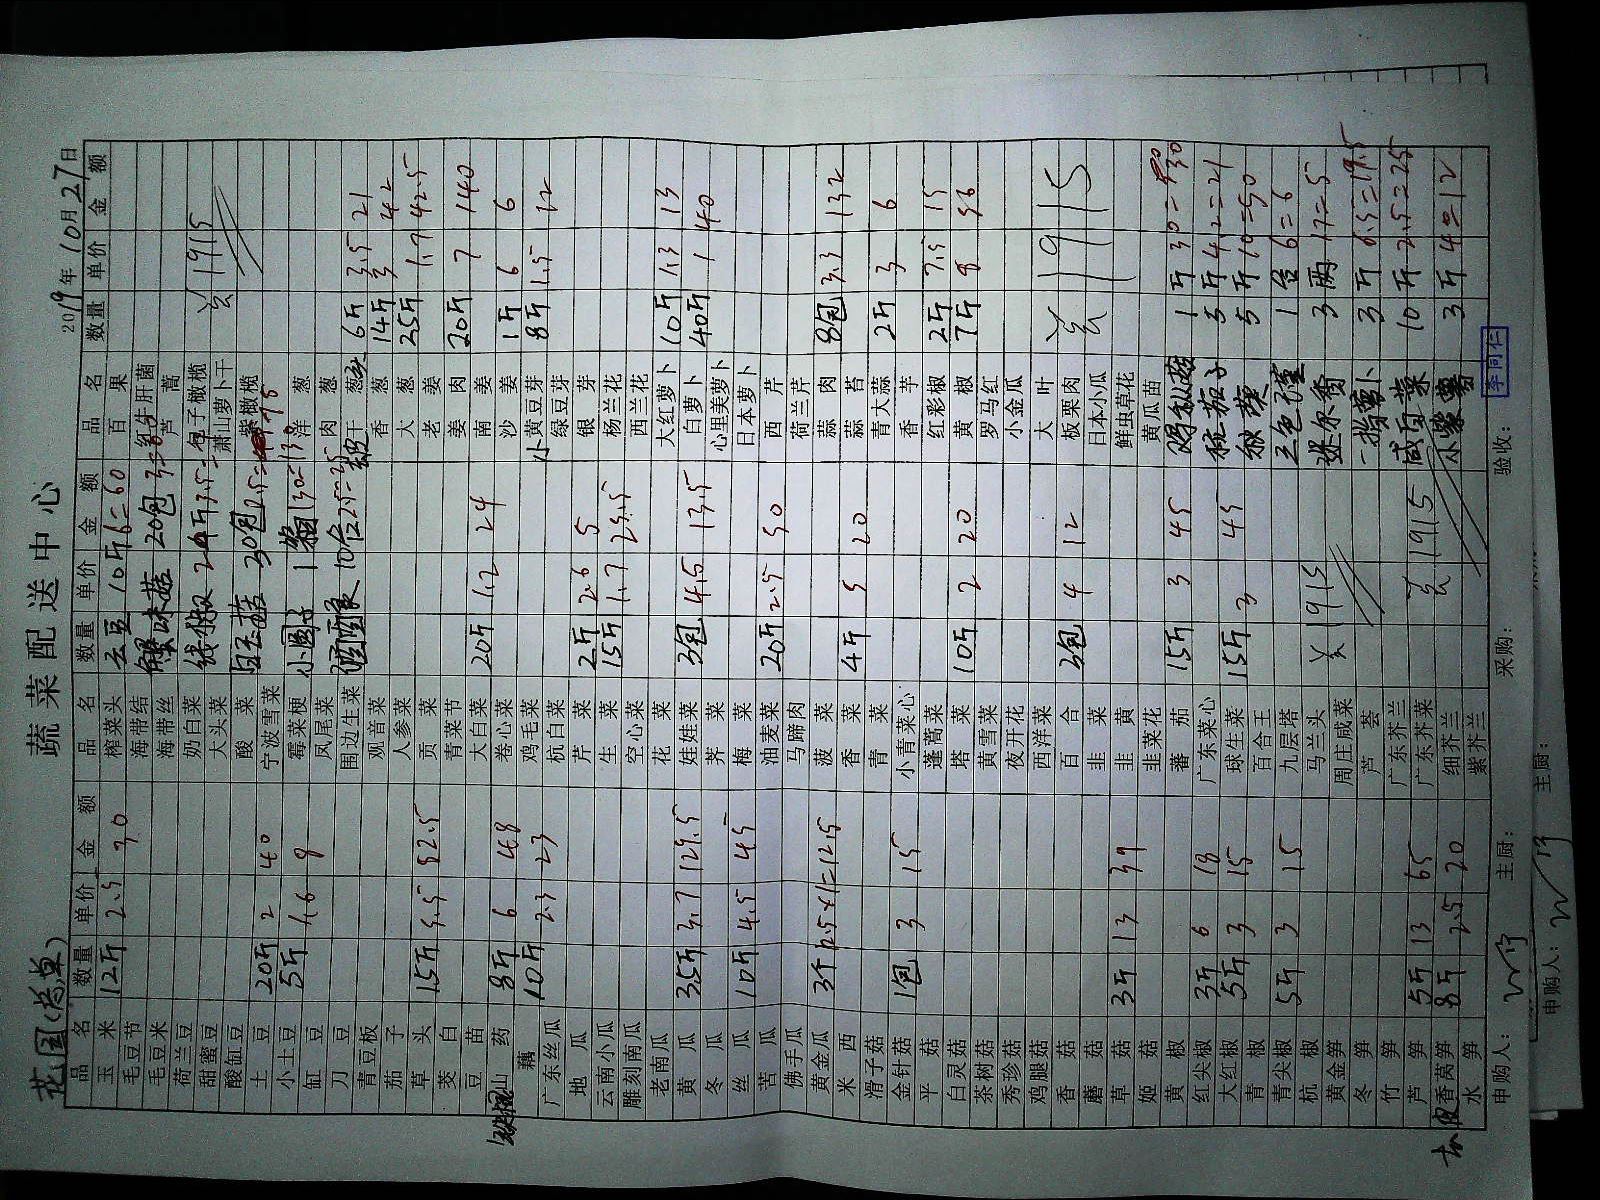 蔬菜配送中心
花园(总单)
2019年10月27日
品名 数量 单价 金额 品名 数量 单价 金额 品名 数量 单价 金额
玉米 12斤 2.5 30
毛豆节
毛豆米
荷兰豆
甜蜜豆
酸缸豆
土豆 20斤 2 40
小土豆 5斤 1.6 8
缸豆
刀豆
青豆板
茄子
草头 15斤 5.5 82.5
茭白
豆苗
山药 8斤 6 48
藕 10斤 2.3 23
广东丝瓜
地瓜
云南小瓜
雕刻南瓜
老南瓜
黄瓜 35斤 3.7 129.5
冬瓜
丝瓜 10斤 4.5 45
苦瓜
佛手瓜
黄金瓜
米西
滑子菇
金针菇 1包 3 15
平菇
白灵菇
茶树菇
秀珍菇
鸡腿菇
香菇
蘑菇
草菇 3斤 13 39
姬菇
黄椒
红尖椒 3斤 6 18
大红椒 5斤 3 15
青椒
青尖椒 5斤 3 15
杭椒
黄金笋
冬笋
竹笋
芦笋 5斤 13 65
去皮香莴笋 8斤 2.5 20
水笋
榨菜头
海带结
海带丝
奶白菜
大头菜
酸菜
宁波雪菜
霉菜梗
凤尾菜
围边生菜
观音菜
人参菜
贡菜
青菜节
大白菜 20斤 1.2 24
卷心菜
鸡毛菜
杭白菜
芹菜 2斤 2.6 5
生菜 15斤 1.7 25.5
空心菜
花菜
娃娃菜 3包 4.5 13.5
荠菜
梅菜
油麦菜 20斤 2.5 50
马蹄肉
菠菜
香菜 4斤 5 20
青菜
小青菜心
蓬蒿菜
塔菜 10斤 2 20
黄雪菜
夜开花
西洋菜
百合 3包 4 12
韭菜
韭黄
韭菜花
蕃茄 15斤 3 45
广东菜心
球生菜 15斤 3 45
百合王
九层塔
马兰头
周庄咸菜
芦荟
广东芥兰
广东芥菜
细芥兰
紫芥兰
¥1915
¥1915
云豆 10斤 6=60
蟹味菇 20包
线椒
白玉菇 30包 2.5=75
小圆子 1箱 130=130
酒酿 10合 2.5=25
百果
芦蒿
包子橄榄
萧山萝卜干
紫橄榄
洋葱
肉葱
干葱头 6斤 3.5 21
香葱 14斤 3 42
大葱 25斤 1.7 42.5
老姜
姜肉 20斤 7 140
南姜
沙姜 1斤 6 6
小黄豆芽 8斤 1.5 12
绿豆芽
银芽
杨兰花
西兰花
大红萝卜 10斤 1.3 13
白萝卜 40斤 1 40
心里美萝卜
日本萝卜
西芹
荷兰芹
蒜肉 8包
蒜苔
青大蒜 2斤 3 6
香芋
红彩椒 2斤 7.5 15
黄椒 7斤 8 56
罗马红
小金瓜
大叶
板栗肉
日本小瓜
鲜虫草花
黄瓜苗
¥1915
¥1915
1斤 30=30
杭茄子 5斤 4.2=21
秋葵 5斤 10=50
三色堇 1合 6=6
迷尔香 3两 17=5
一指萝卜 3斤 6.5=19.5
咸白菜 10斤 2.5=25
小紫薯 3斤 4=12
申购人： 主厨： 采购： 验收：
李同仁
申购人： 主厨：